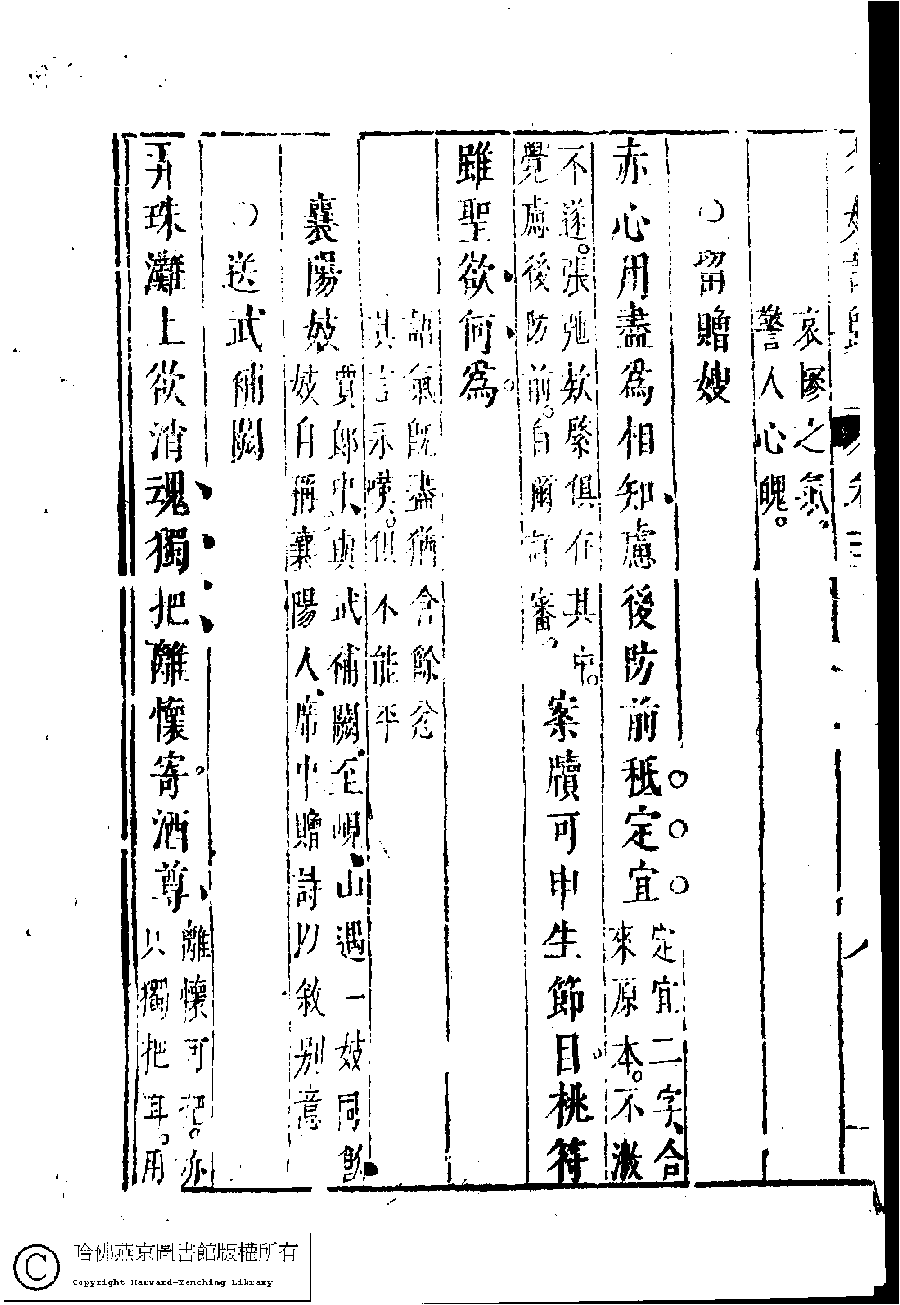 哀慘之氣
警人心魄。
○留贈嫂
赤心用盡為相知慮後防前秪定宜
定宜二字合
來原本。不激
不遂。張弛欸縻俱在其中。
覺慮後防前。自爾審。
案牘可申生節目桃符
雖聖欲何為。
語氣既盡猶含餘忿
其言永嘆。但不能平
襄陽妓
賈郎中與武補闕至峴山遇一妓同飲
妓自稱襄陽人席中贈詩以敘別意
○送武補闕
弄珠灘上欲消魂獨把離懷寄酒尊
離懷可把。亦
只獨把耳。用
哈佛燕京圖書館版權所有
Copyright Harvard-Yenching Library